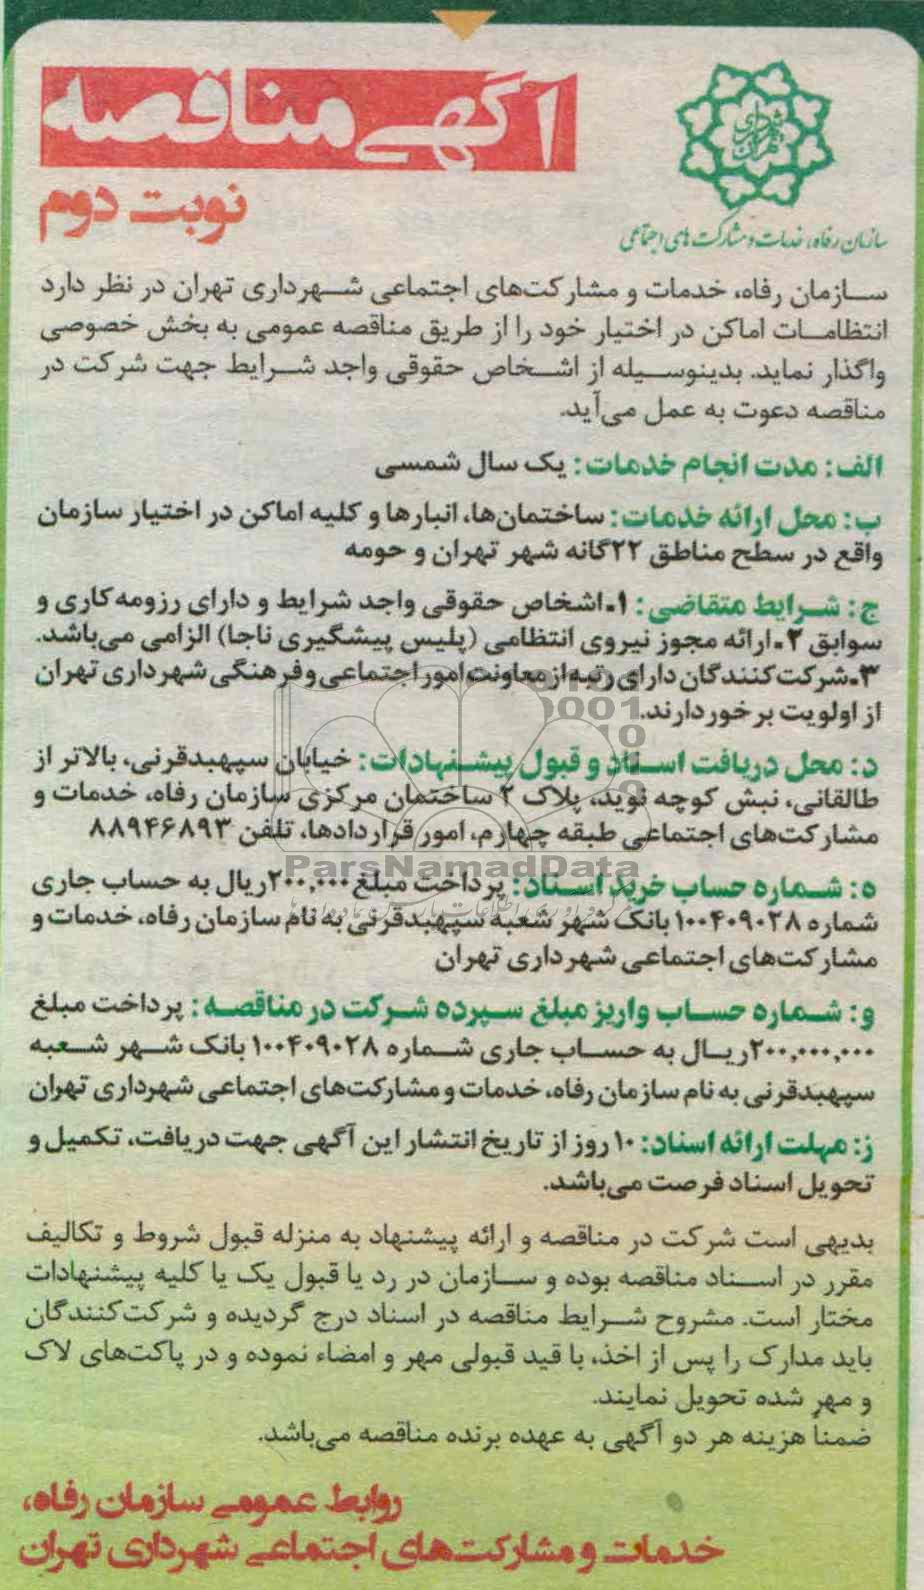 آگهی مناقصه
نوبت دوم
شهرداری تهران
سازمان رفاه، خدمات و مشارکت های اجتماعی
ســازمان رفاه، خدمات و مشارکت‌های اجتماعی شــهرداری تهران در نظر دارد
انتظامــات اماکن در اختیار خود را از طریق مناقصه عمومی به بخش خصوصی
واگذار نماید. بدینوســیله از اشــخاص حقوقی واجد شــرایط جهت شرکت در
مناقصه دعوت به عمل می‌آید.
الف: مدت انجام خدمات: یک سال شمسی
ب: محل ارائه خدمات: ساختمان‌ها، انبارها و کلیه اماکن در اختیار سازمان
واقع در سطح مناطق ۲۲گانه شهر تهران و حومه
ج: شــرایط متقاضی: ۱-اشخاص حقوقی واجد شرایط و دارای رزومه کاری و
سوابق ۲-ارائه مجوز نیروی انتظامی (پلیس پیشگیری ناجا) الزامی می‌باشد.
۳-شرکت‌کنندگان دارای رتبه از معاونت امور اجتماعی و فرهنگی شهرداری تهران
از اولویت برخوردارند.
د: محل دریافت اســناد و قبول پیشــنهادات: خیابان سپهبدقرنی، بالاتر از
طالقانی، نبش کوچه نوید، پلاک ۲ ساختمان مرکزی سازمان رفاه، خدمات و
مشارکت‌های اجتماعی طبقه چهارم، امور قراردادها، تلفن ۸۸۹۴۶۸۹۳
ParsNamadData
ه: شــماره حساب خرید اســناد: پرداخت مبلغ ۲۰۰,۰۰۰ریال به حساب جاری
شماره ۱۰۰۴۰۹۰۲۸ بانک شهر شعبه سپهبدقرنی به نام سازمان رفاه، خدمات و
مشارکت‌های اجتماعی شهرداری تهران
و: شــماره حســاب واریز مبلغ ســپرده شرکت در مناقصــه: پرداخت مبلغ
۲۰۰,۰۰۰,۰۰۰ریــال به حســاب جاری شــماره ۱۰۰۴۰۹۰۲۸ بانک شــهر شــعبه
سپهبدقرنی به نام سازمان رفاه، خدمات و مشارکت‌های اجتماعی شهرداری تهران
ز: مهلت ارائه اسناد: ۱۰ روز از تاریخ انتشار این آگهی جهت دریافت، تکمیل و
تحویل اسناد فرصت می‌باشد.
بدیهی است شرکت در مناقصه و ارائه پیشنهاد به منزله قبول شروط و تکالیف
مقرر در اســناد مناقصه بوده و ســازمان در رد یا قبول یک یا کلیه پیشنهادات
مختار است. مشروح شــرایط مناقصه در اسناد درج گردیده و شرکت‌کنندگان
باید مدارک را پس از اخذ، با قید قبولی مهر و امضاء نموده و در پاکت‌های لاک
و مهر شده تحویل نمایند.
ضمناً هزینه هر دو آگهی به عهده برنده مناقصه می‌باشد.
روابط عمومی سازمان رفاه،
خدمات و مشارکت‌های اجتماعی شهرداری تهران